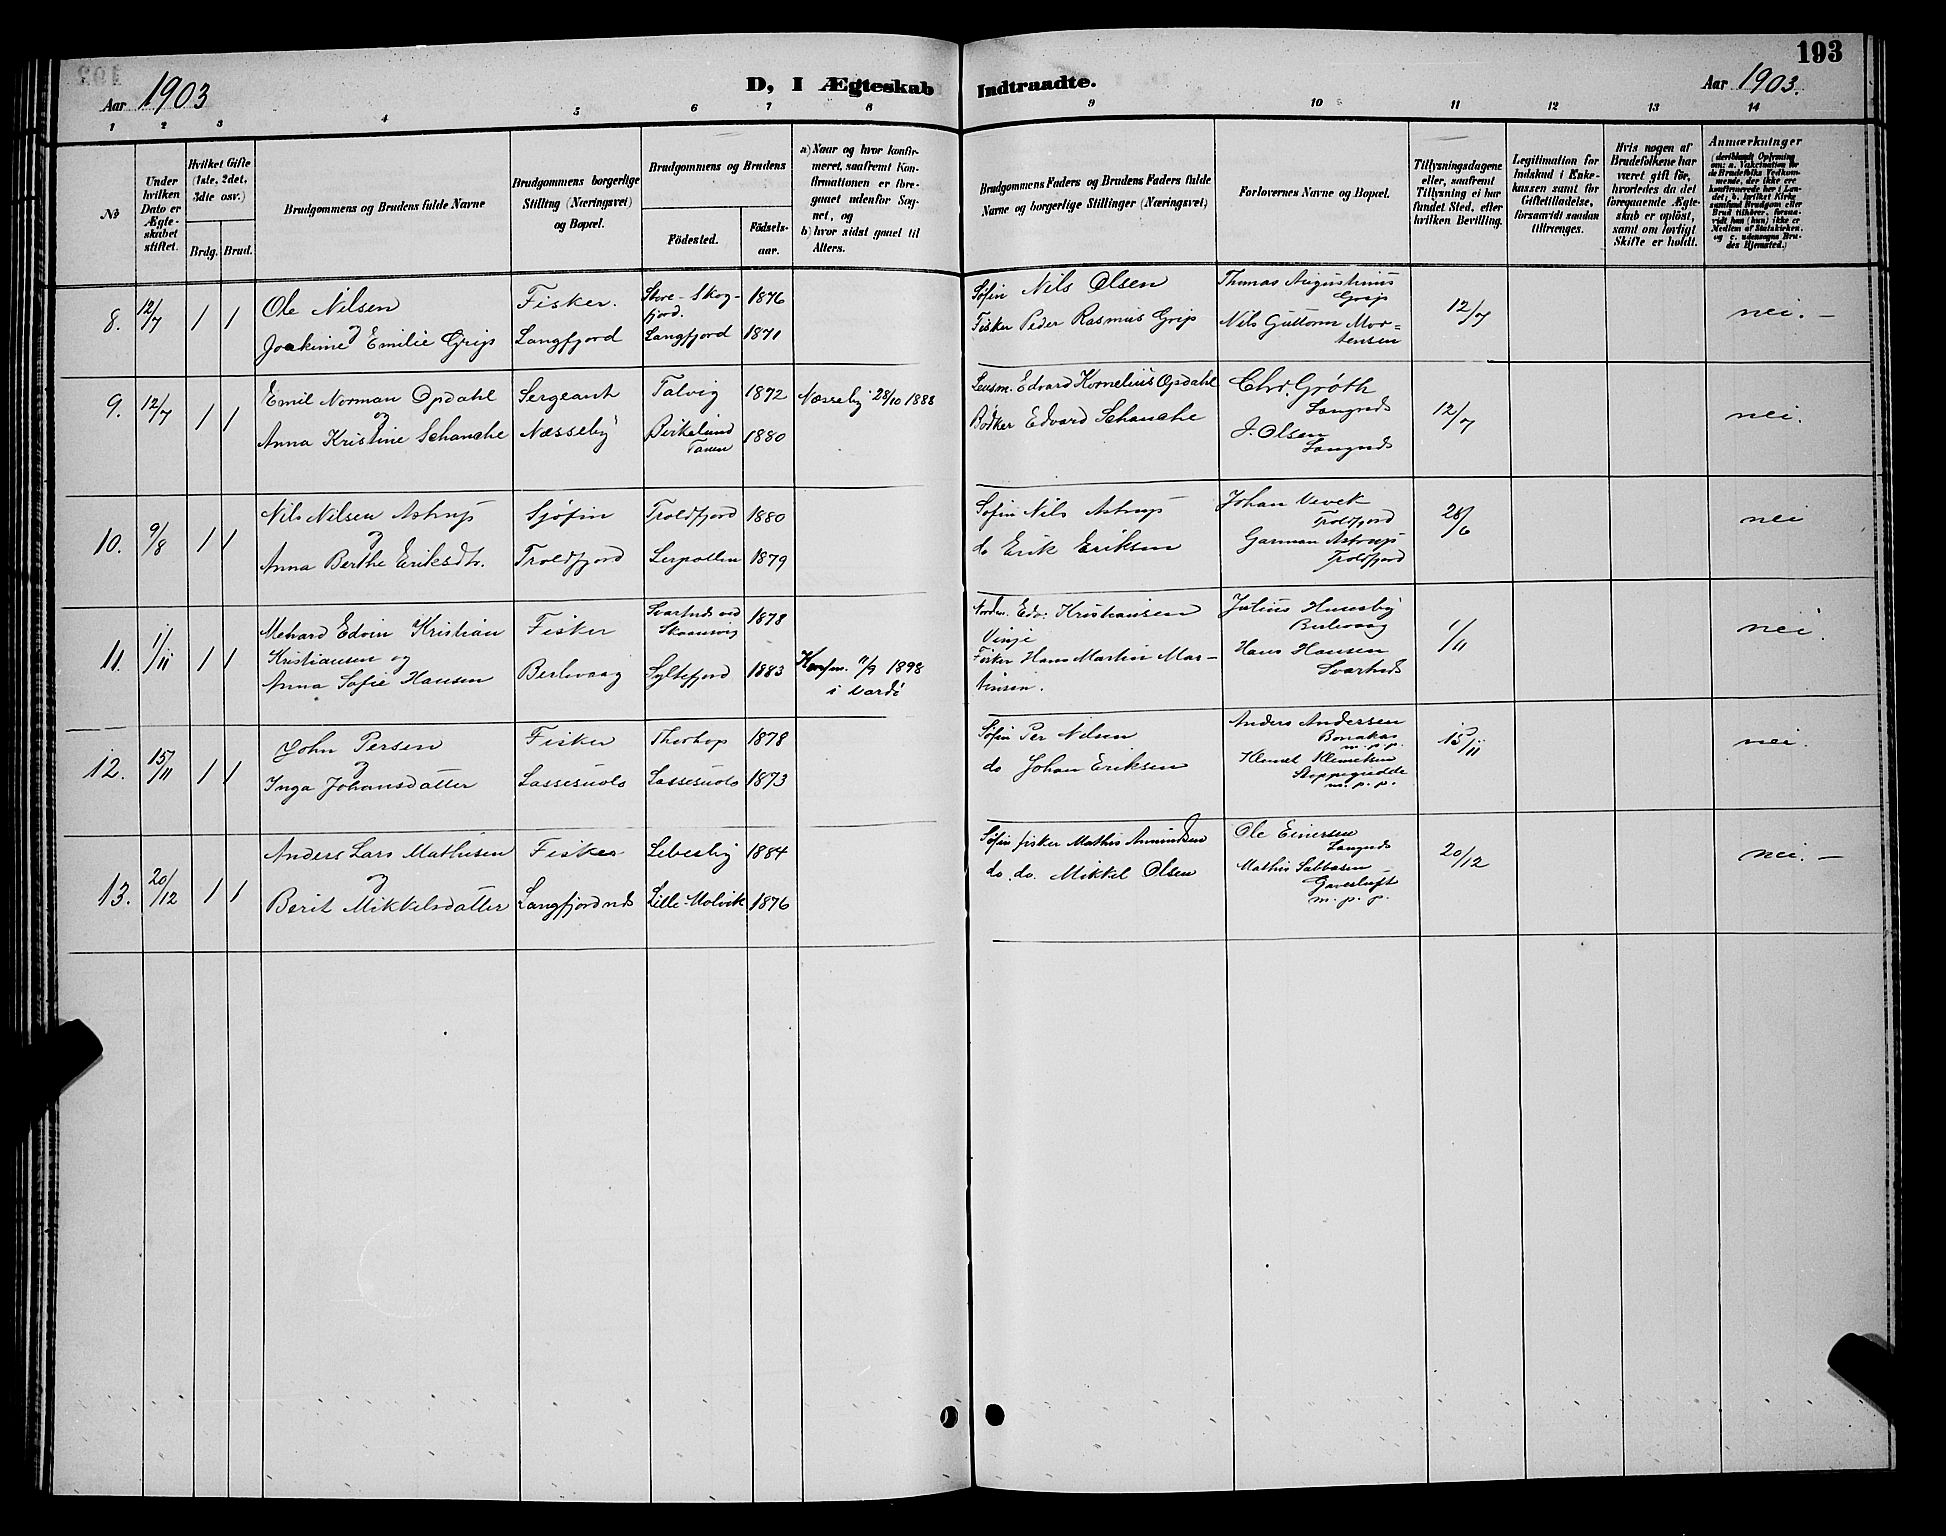 193
Aar 1903
D, I Ægteskab Indtraadte.
Aar 1903.
1 2 3 4 5 6 7 8 9 10 11 12 13 14
№
Under
hvilken
Dato er
Ægte-
skabet
stiftet.
Hvilket Gifte
(1ste, 2det,
3die osv.)
Brdg. Brud.
Brudgommens og Brudens fulde Navne
Brudgommens borgerlige
Stilling (Næringsvei)
og Bopæl.
Brudgommens og Brudens
Födested.
Födsels-
aar.
a) Naar og hvor konfir-
meret, saafremt Kon-
firmationen er fore-
gaaet udenfor Sog-
net, og
b) hvor sidst gaaet til
Alters.
Brudgommens Faders og Brudens Faders fulde
Navne og borgerlige Stillinger (Næringsvei)
Forlovernes Navne og Bopæl.
Tillysningsdagene
eller, saafremt
Tillysning ei har
fundet Sted, efter
hvilken Bevilling.
Legitimation for
Indskud i Enke-
kassen samt for
Giftetilladelse,
forsaavidt saadan
tiltrænges.
Hvis nogen af
Brudefolkene har
været gift för,
hvorledes da det
foregaaende Ægte-
skab er oplöst,
samt om lovligt
Skifte er holdt.
Anmærkninger
(deriblandt Oplysning
om: a. Vakcination af
de Brudefolks Vedkom-
mende, der ikke ere
konfirmerede her i Lan-
det; b. hvilket Kirke-
samfund Brudgom eller
Brud tilhörer, forsaa-
vidt han (hun) ikke er
Medlem af Statskirken,
og c. udensogns Bru-
des Hjemsted.)
8. 12/7 1 1
Ole Nilsen
og
Joakime Emilie Grip
Fisker.
Langfjord
Store-Skog-
fjord.
Langfjord
1876
1871
Søfin Nils Olsen
Fisker Peder Rasmus Grip
Thomas Augustinus
Grip
Nils Guttorm Mor-
tensen
12/7
nei. —
9. 12/7 1 1
Emil Norman Opdahl
og
Anna Kristine Schanche
Sergeant
Næsseby
Talvig
Birkelund
Tanen
1872
1880
Næsseby 28/10 1888
Lensm. Edvard Kornelius Opdahl
Bödker Edvard Schanche
Chr. Grøth
Langnes
J. Olsen
Langnes
12/7
nei.
10. 9/8 1 1
Nils Nilsen Astrup
og
Anna Berthe Eriksdtr.
Sjøfin
Troldfjord
Troldfjord
Lerpollen
1880
1879
Søfin Nils Astrup
do Erik Eriksen
Johan Vevek
Troldfjord
Garman Astrup
Troldfjord
28/6
nei
11. 1/11 1 1
Mehard Edvin Kristian
Kristiansen og
Anna Sofie Hansen
Fisker
Berlevaag
Svartnes ved
Skaanvig
Syltefjord
1878
1883
Konfm. 11/9 1898
i Vardö
Nordm. Edv. Kristiansen
Vinje
Fisker Hans Martin Mar-
tinsen.
Julius Huseby
Berlevaag
Hans Hansen
Svartnes
1/11
nei.
12. 15/11 1 1
John Persen
og
Inga Johansdatter
Fisker
Lassesuolo
Thorhop
Lassesuolo
1878
1873
Søfin Per Nilsen
do Johan Eriksen
Anders Andersen
Bonakas
m. p. p.
Klemet Klemetsen
Stoppegiedde
m. p. p.
15/11
nei.
13. 20/12 1 1
Anders Lars Mathisen
og
Berit Mikkelsdatter
Fisker
Langfjordnes
Lebesby
Lille-Molvik
1884
1876
Søfin fisker Mathis Amundsen
do. do. Mikkel Olsen
Ole Einersen
Langnes
Mathis Sabbasen
Gavesluft
m. p. p.
20/12
nei. —